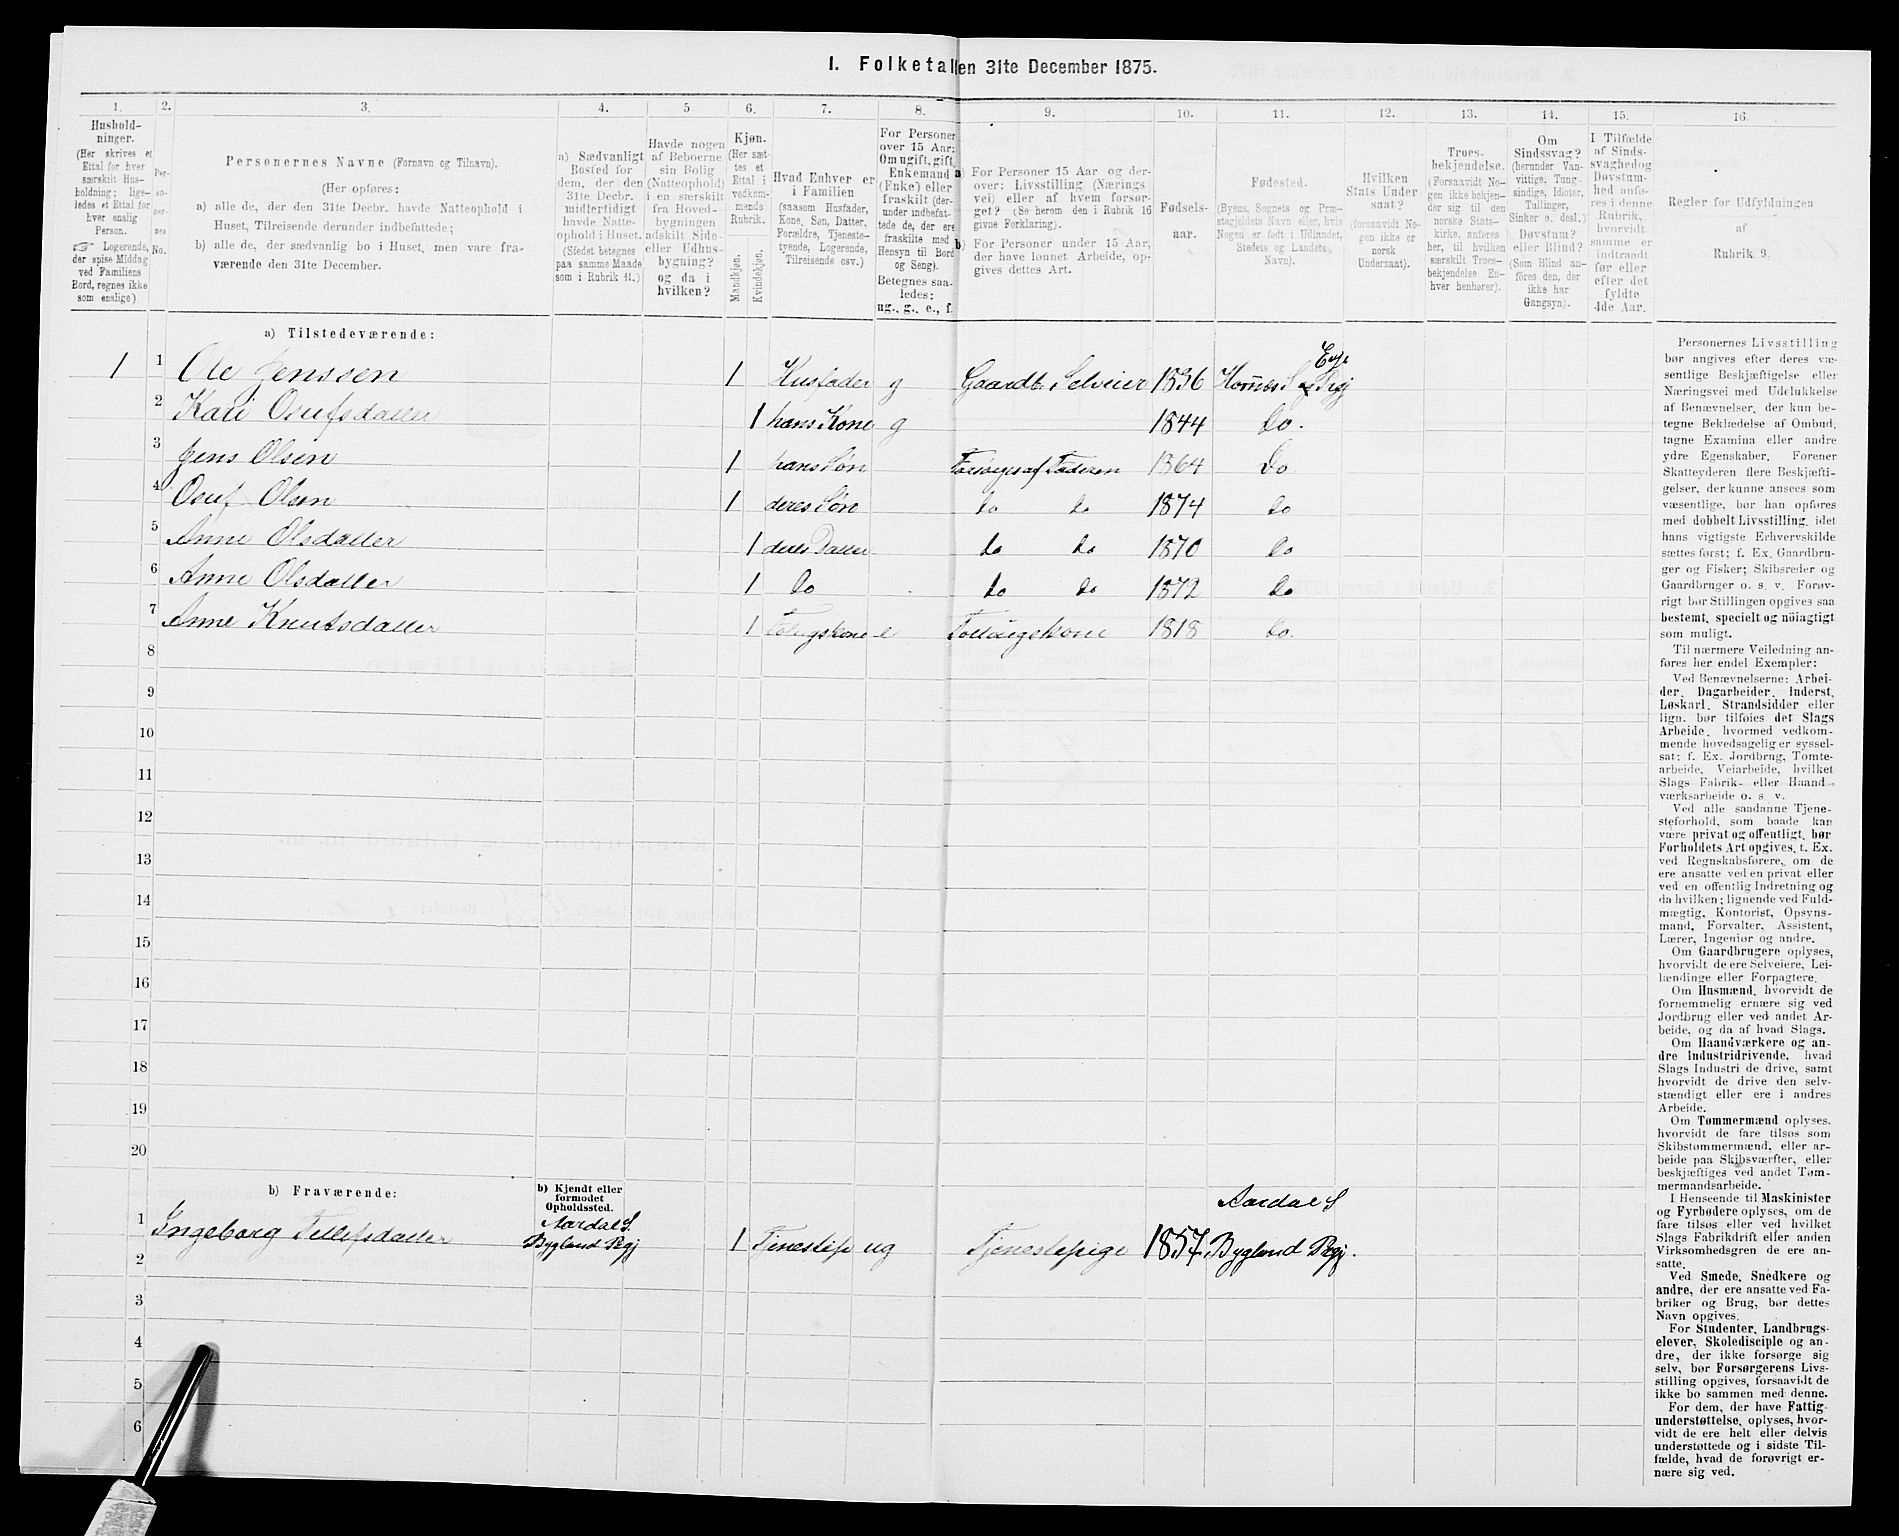 I. Folketal den 31te December 1875.
1. 2. 3. 4. 5 6. 7. 8. 9. 10. 11. 12. 13. 14. 15. 16
Hushold-
ninger.
(Her skrives et
Ettal for hver
særskilt Hus-
holdning; lige-
ledes et Ettal for
hver enslig
Person.
☞ Logerende,
der spise Middag
ved Familiens
Bord, regnes ikke
som enslige)
Per-
so-
ner-
nes
No.
Personernes Navne (Fornavn og Tilnavn).
(Her opføres:
a) alle de, der den 31te Decbr. havde Natteophold i
Huset, Tilreisende derunder indbefattede;
b) alle de, der sædvanlig bo i Huset, men vare fra-
værende den 31te December.
a) Sædvanligt
Bosted for
dem, der den
31te Decbr.
midlertidigt
havde Natte-
ophold i Huset.
(Stedet betegnes
paa samme Maade
som i Rubrik 11.)
Havde nogen
af Beboerne
sin Bolig
(Natteophold)
i en særskilt
fra Hoved-
bygningen
adskilt Side-
eller Udhus-
bygning?
og da i
hvilken?
Kjøn.
(Her sæt-
tes et
Ettal i
vedkom-
mende
Rubrik.
Mandkjøn.
Kvindekjøn.
Hvad Enhver er
i Familien
(saasom Husfader,
Kone, Søn, Datter,
Forældre, Tjeneste-
tyende, Logerende,
Tilreisende osv.)
For Personer
over 15 Aar:
Om ugift, gift,
Enkemand
(Enke) eller
fraskilt (der-
under indbefat-
tede de, der ere
fraskilte med
Hensyn til Bord
og Seng).
Betegnes saa-
ledes:
ug., g., e., f.
a) For Personer 15 Aar og der-
over: Livsstilling (Nærings
vei) eller af hvem forsør-
get? (Se herom den i Rubrik 16
givne Forklaring).
b) For Personer under 15 Aar,
der have lønnet Arbeide, op-
gives dettes Art.
Fødsels-
aar.
Fødested.
(Byens, Sognets og Præ-
stegjeldets Navn eller, hvis
Nogen er født i Udlandet,
Stedets og Landets
Navn).
Hvilken
Stats Under-
saat?
(forsaavidt No-
gen ikke er
norsk
Undersaat).
Troes-
bekjendelse.
(Forsaavidt No-
gen ikke bekjen-
der sig til den
norske Stats-
kirke, anføres
her, til hvilken
særskilt Troes-
bekjendelse En-
hver henhører).
Om
Sindssvag?
(herunder Van-
vittige, Tung-
sindige, Idioter,
Tullinger,
Sinker o. desl.)
Døvstum?
eller Blind?
(Som Blind an-
føres den, der
ikke har
Gangsyn).
I Tilfælde
af Sinds-
svaghed og
Døvstum-
hed anfø-
res i denne
Rubrik,
hvorvidt
samme er
indtraadt
før eller
efter det
fyldte
4de Aar.
Regler for Udfyldningen
af
Rubrik 9.
a) Tilstedeværende:
1 1 Ole Jenssen 1 Husfader g Gaardb. Selveier 1836 Hornes S Evje Prgj
2 Kari Osufsdatter 1 hans Kone g 1844 Do.
3 Jens Olsen 1 hans Søn Forsørges af Faderen 1864 Do
4 Osuf Olsen 1 deres Søn do do 1874 do
5 Anne Olsdatter 1 deres Datter do do 1870 do
6 Anne Olsdatter 1 Do do do 1872 do
7 Anne Knutsdatter 1 e 1818 do.
8
9
10
11
12
13
14
15
16
17
18
19
20
b) Fraværende:
b) Kjendt eller
formodet
Opholdssted.
1 Ingeborg Tellefsdatter Aardal S. Bygland Prgj 1 Tjenestep ug Tjenestepige 1857 Aardal S Bygland Prgj.
2
3
4
5
6
Personernes Livsstilling
bør angives efter deres væ-
sentlige Beskjæftigelse eller
Næringsvei med Udelukkelse
af Benævnelser, der kun be-
tegne Beklædelse af Ombud,
tagne Examina eller andre
ydre Egenskaber. Forener
Skatteyderen flere Beskjæfti-
gelser, der kunne ansees som
væsentlige, bør han opføres
med dobbelt Livsstilling, idet
hans vigtigste Erhvervskilde
sættes først; f. Ex. Gaardbru-
ger og Fisker; Skibsreder og
Gaardbruger o. s. v. Forøv-
rigt bør Stillingen opgives saa
bestemt, specielt og nöiagtigt
som muligt.
Til nærmere Veiledning an-
føres her endel Exempler:
Ved Benævnelserne: Arbei-
der, Dagarbeider, Inderst,
Løskarl, Strandsidder eller
lign. bør tilføies det Slags
Arbeide, hvormed vedkom-
mende hovedsagelig er syssel-
sat; f. Ex. Jordbrug, Tomte-
arbeide, Veiarbeide, hvilket
Slags Fabrik- eller Haand-
værksarbeide o. s. v.
Ved alle saadanne Tjene-
steforhold, som baade kan
være privat og offentligt, bør
Forholdets Art opgives, t. Ex.
ved Regnskabsførere, om de
ere ansatte ved en privat eller
ved en offentlig Indretning og
da hvilken; lignende ved Fuld-
mægtig, Kontorist, Opsyns-
mand, Forvalter, Assistent,
Lærer, Ingeniør og andre.
Om Gaardbrugere oplyses,
hvorvidt de ere Selveiere, Lei-
lændinge eller Forpagtere.
Om Husmænd, hvorvidt de
fornemmelig ernære sig ved
Jordbrug eller ved andet Ar-
beide, og da af hvad Slags.
Om Haandværkere og an-
dre Industridrivende, hvad
Slags Industri de drive, samt
hvorvidt de drive den selv-
stændigt eller ere i andres
Arbeide.
Om Tømmermænd oplyses,
hvorvidt de fare tilsøs som
Skibstømmermænd, eller ar-
beide paa Skibsværfter, eller
beskjæftiges ved andet Tøm-
mermandsarbeide.
I Henseende til Maskinister
og Fyrbødere oplyses, om de
fare tilsøs eller ved hvilket
Slags Fabrikdrift eller anden
Virksomhedsgren de ere an-
satte.
Ved Smede, Snedkere og
andre, der ere ansatte ved Fa-
briker og Brug, bør dettes
Navn opgives.
For Studenter, Landbrugs-
elever, Skoledisciple og an-
dre, der ikke forsørge sig
selv, bør Forsørgerens Livs-
stilling opgives, forsaavidt de
ikke bo sammen med denne.
For dem, der have Fattig-
understøttelse, oplyses, hvor-
vidt de ere helt eller delvis
understøttede og i sidste Til-
fælde, hvad de forøvrigt er-
nære sig ved.